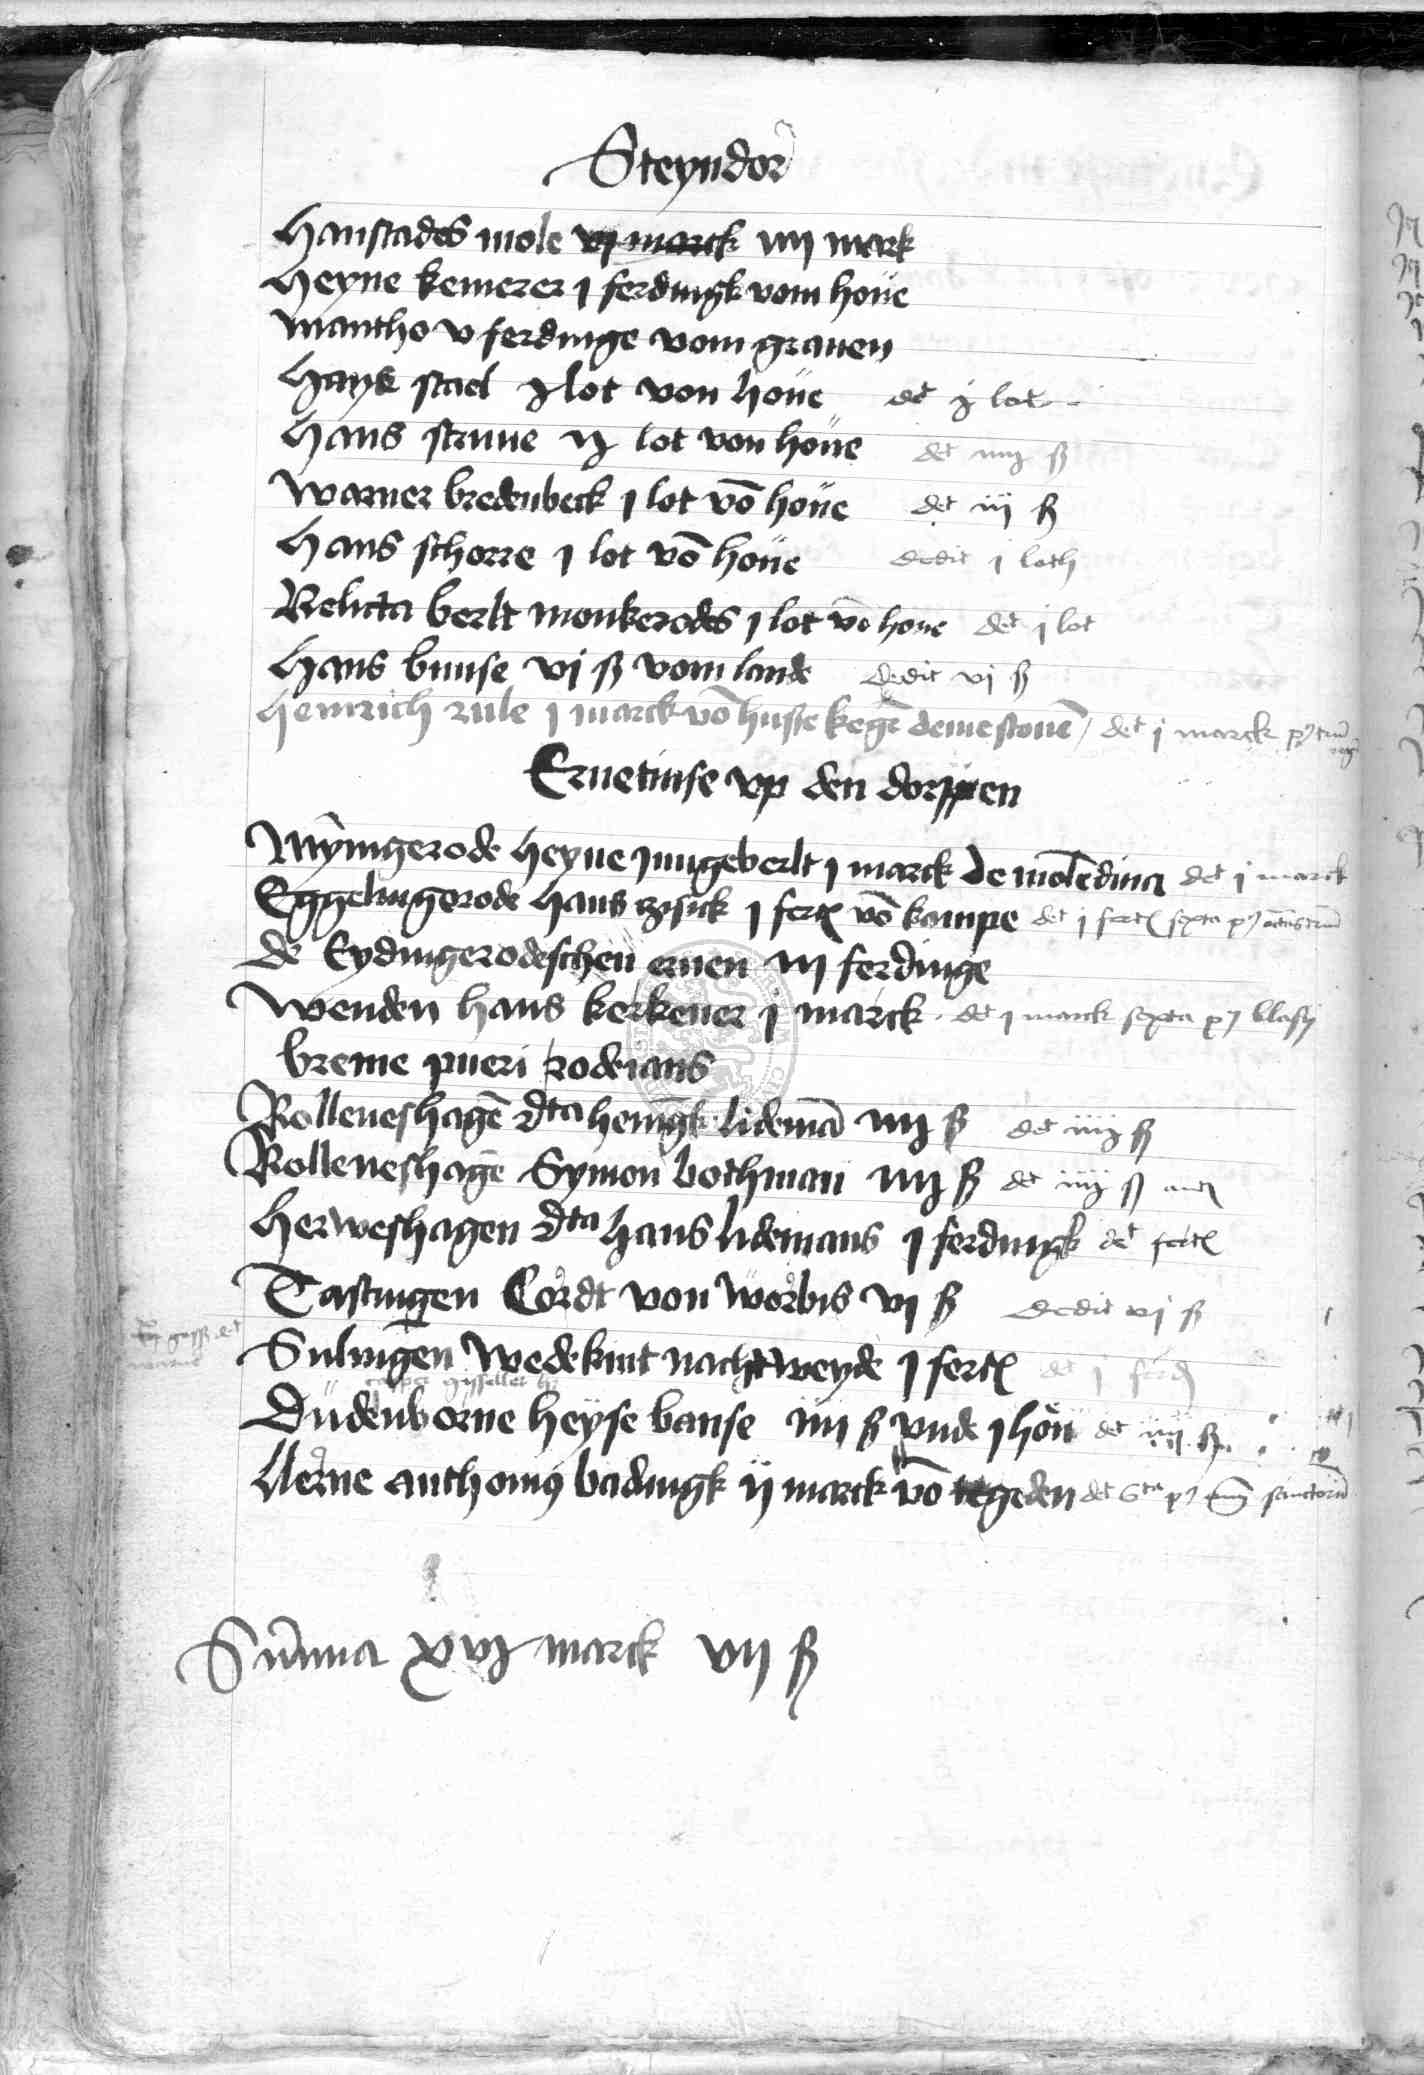 Steyndor
Hanstades mole vj marck iiij mark
Heyne kemerer j ferdingk vom houe
Mantho v ferdinge vom grauen
Hans stael j lot von houe det j lot
Hans struue ij lot von houe det iiij ß
Warner bredenbeck j lot võ houe det iij ß
Hans schorre j lot võ houe dedit j loth
Relicta berlt monkerodes j lot võ houe det j lot
Hans bunse vj ß vom lande dedit vj ß
Heinrich rule j marck võ huse kegẽ deme stouẽ det j marck
Eruetinse vp den dorppen
Wyngerode heyne jungeberlt j marck de molendina det j marck
Eggelingerode hans j fert võ kampe det j fert sexta
de Eydingerodeschen eruen iij ferdinge
Wenden hans kerkener j marck det j marck sexta p blasij
breme pueri rodeians
Rolleueshagẽ dta hennigk lidemã iiij ß det iiij ß
Rolleueshagẽ Symon bothman iiij ß det iiij ß
Herweshagen dta hans lidemans j ferdingk det fert
Tastungen Cordt von worbis vj ß dedit vj ß
Sulingen wedekint nachtweyde j fert det j ferd
Dudenborne heyse banse iiij ß vnde j hon det iiij ß
Uerne anthonig badingk ij marck võ tegeden det 6ta p sanctorũ
Sũma xvj marck vij ß